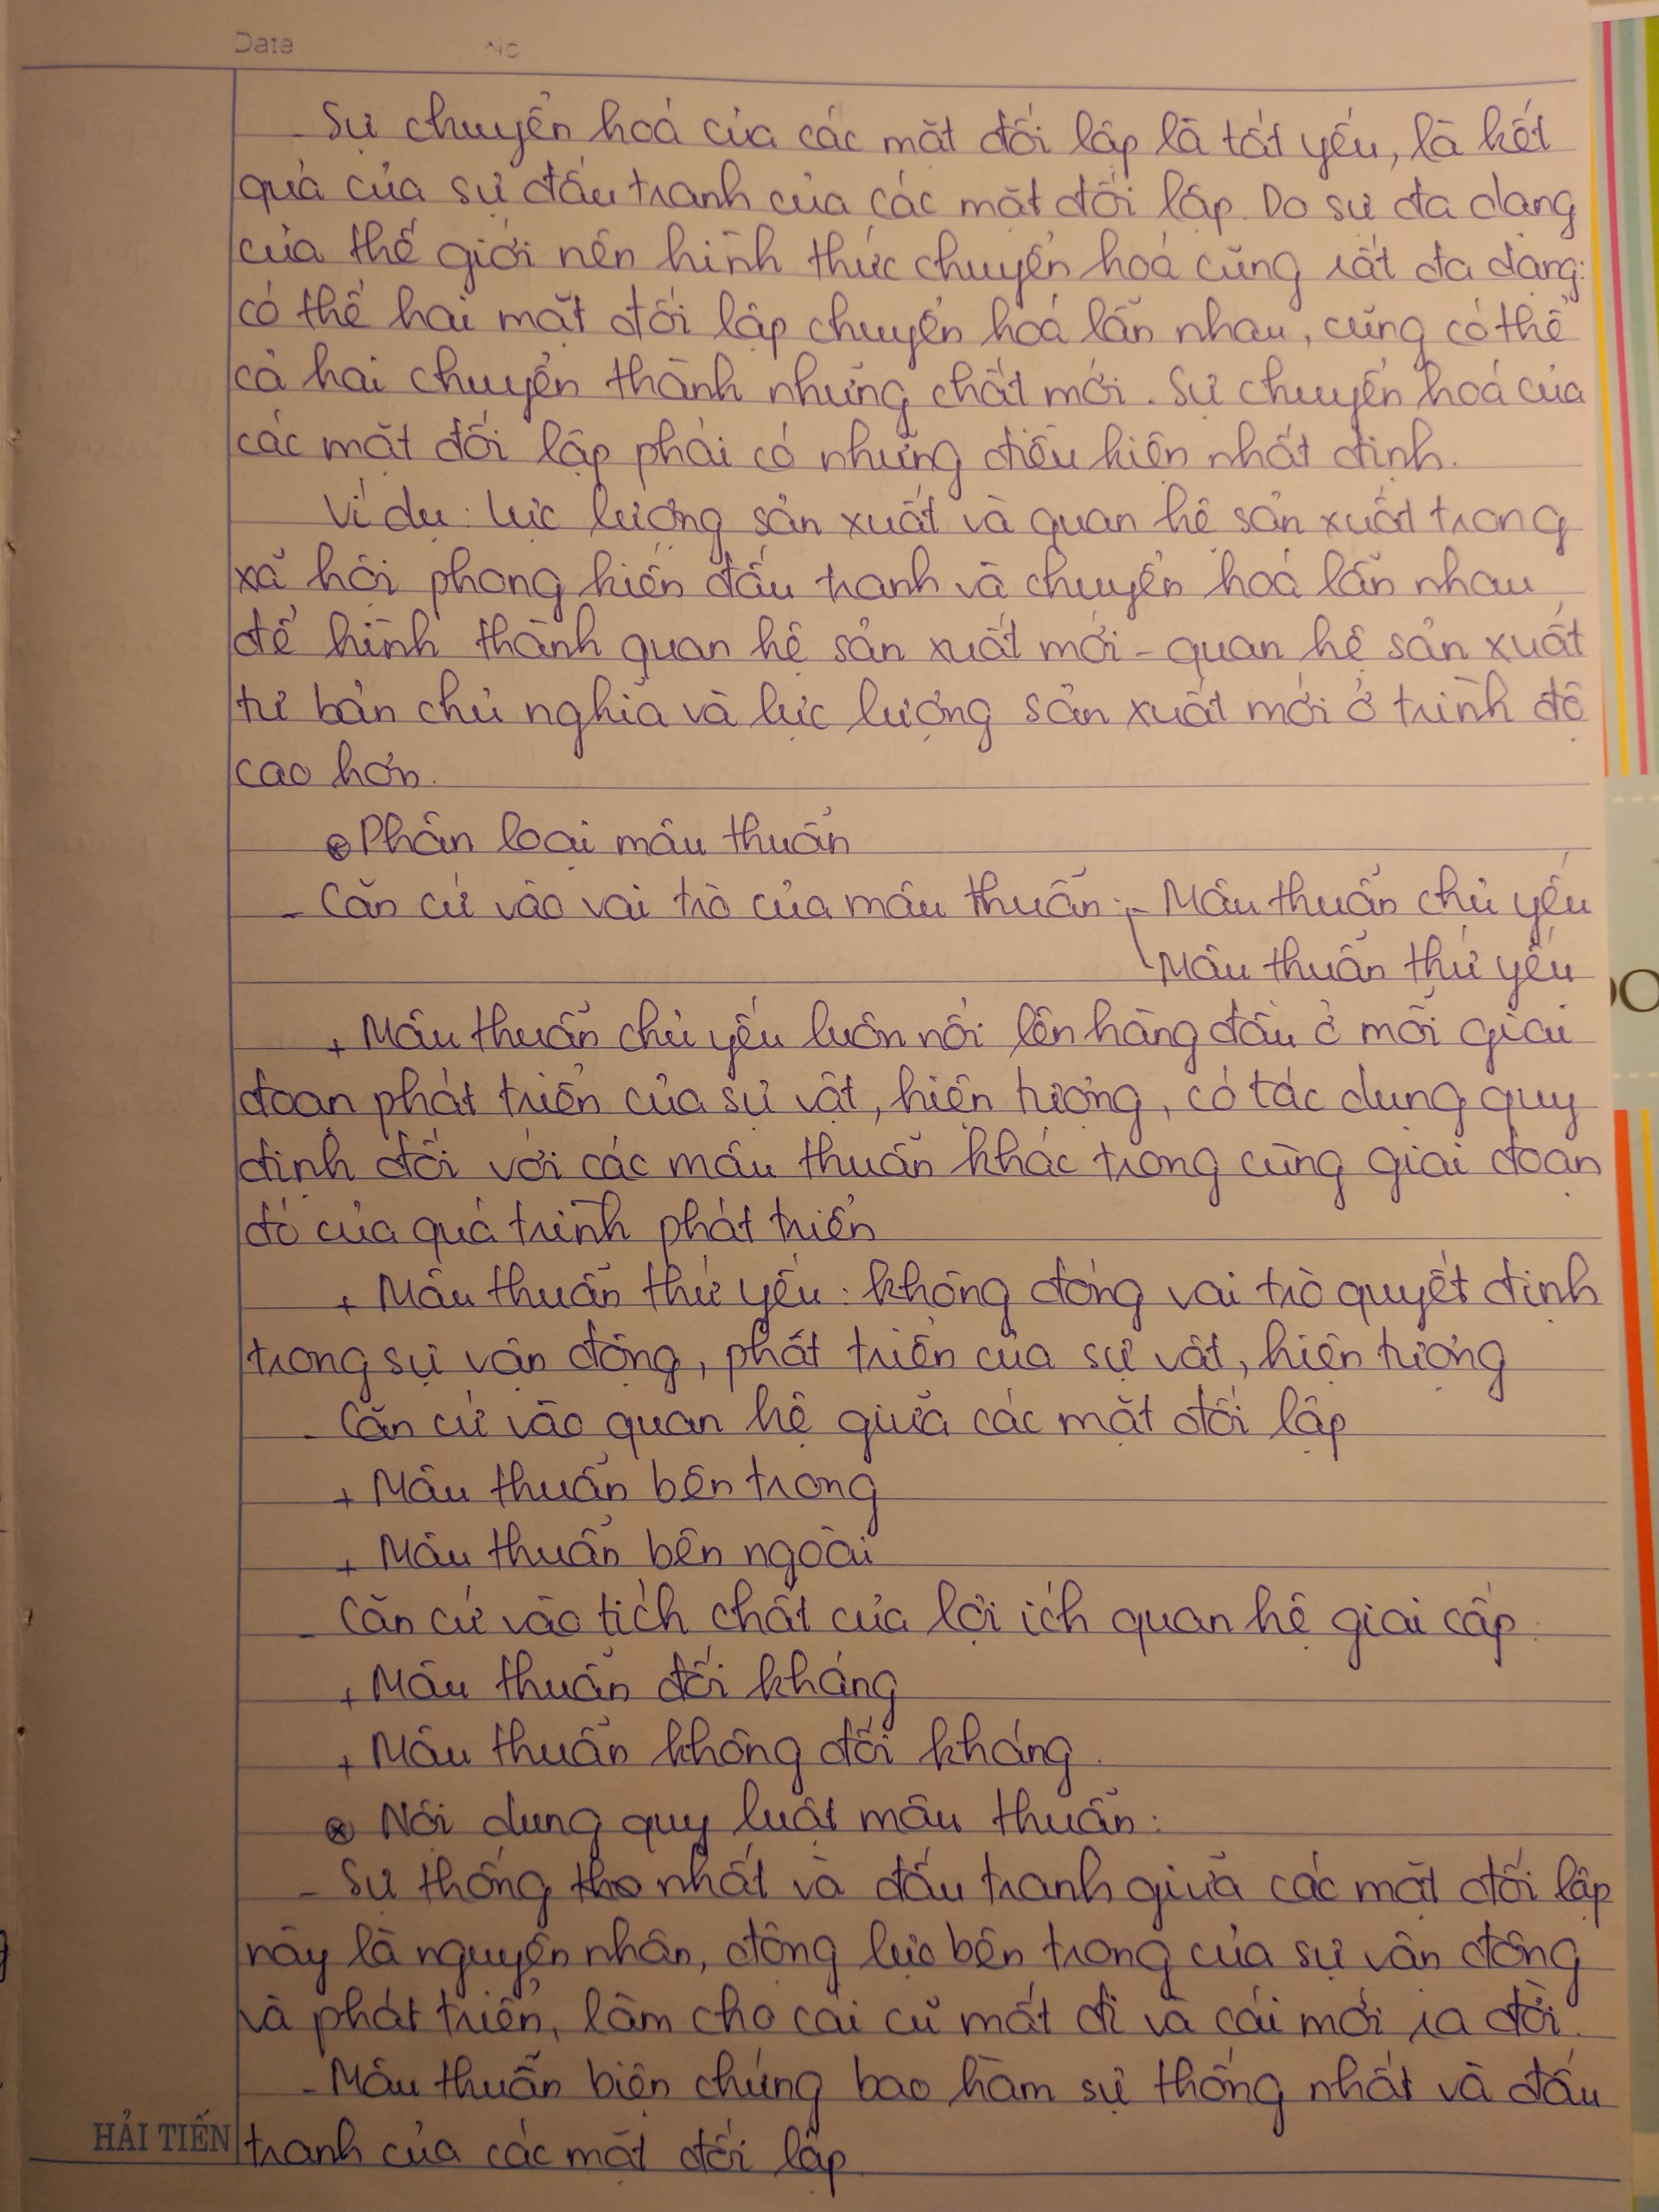 Date No
- Sự chuyển hoá của các mặt đối lập là tất yếu, là kết
quả của sự đấu tranh của các mặt đối lập. Do sự đa dạng
của thế giới nên hình thức chuyển hoá cũng rất đa dạng:
có thể hai mặt đối lập chuyển hoá lẫn nhau, cũng có thể
cả hai chuyển thành những chất mới. Sự chuyển hoá của
các mặt đối lập phải có những điều kiện nhất định.
Ví dụ: lực lượng sản xuất và quan hệ sản xuất trong
xã hội phong kiến đấu tranh và chuyển hoá lẫn nhau
để hình thành quan hệ sản xuất mới - quan hệ sản xuất
tư bản chủ nghĩa và lực lượng sản xuất mới ở trình độ
cao hơn.
⊗ Phân loại mâu thuẫn
- Căn cứ vào vai trò của mâu thuẫn: - Mâu thuẫn chủ yếu
Mâu thuẫn thứ yếu
+ Mâu thuẫn chủ yếu luôn nổi lên hàng đầu ở mỗi giai
đoạn phát triển của sự vật, hiện tượng, có tác dụng quy
định đối với các mâu thuẫn khác trong cùng giai đoạn
đó của quá trình phát triển
+ Mâu thuẫn thứ yếu: không đóng vai trò quyết định
trong sự vận động, phát triển của sự vật, hiện tượng
- Căn cứ vào quan hệ giữa các mặt đối lập
+ Mâu thuẫn bên trong
+ Mâu thuẫn bên ngoài
- Căn cứ vào tích chất của lợi ích quan hệ giai cấp:
+ Mâu thuẫn đối kháng
+ Mâu thuẫn không đối kháng.
⊗ Nội dung quy luật mâu thuẫn:
- Sự thống tho nhất và đấu tranh giữa các mặt đối lập
này là nguyên nhân, động lực bên trong của sự vận động
và phát triển, làm cho cái cũ mất đi và cái mới ra đời.
- Mâu thuẫn biện chứng bao hàm sự thống nhất và đấu
tranh của các mặt đối lập.
HẢI TIẾN